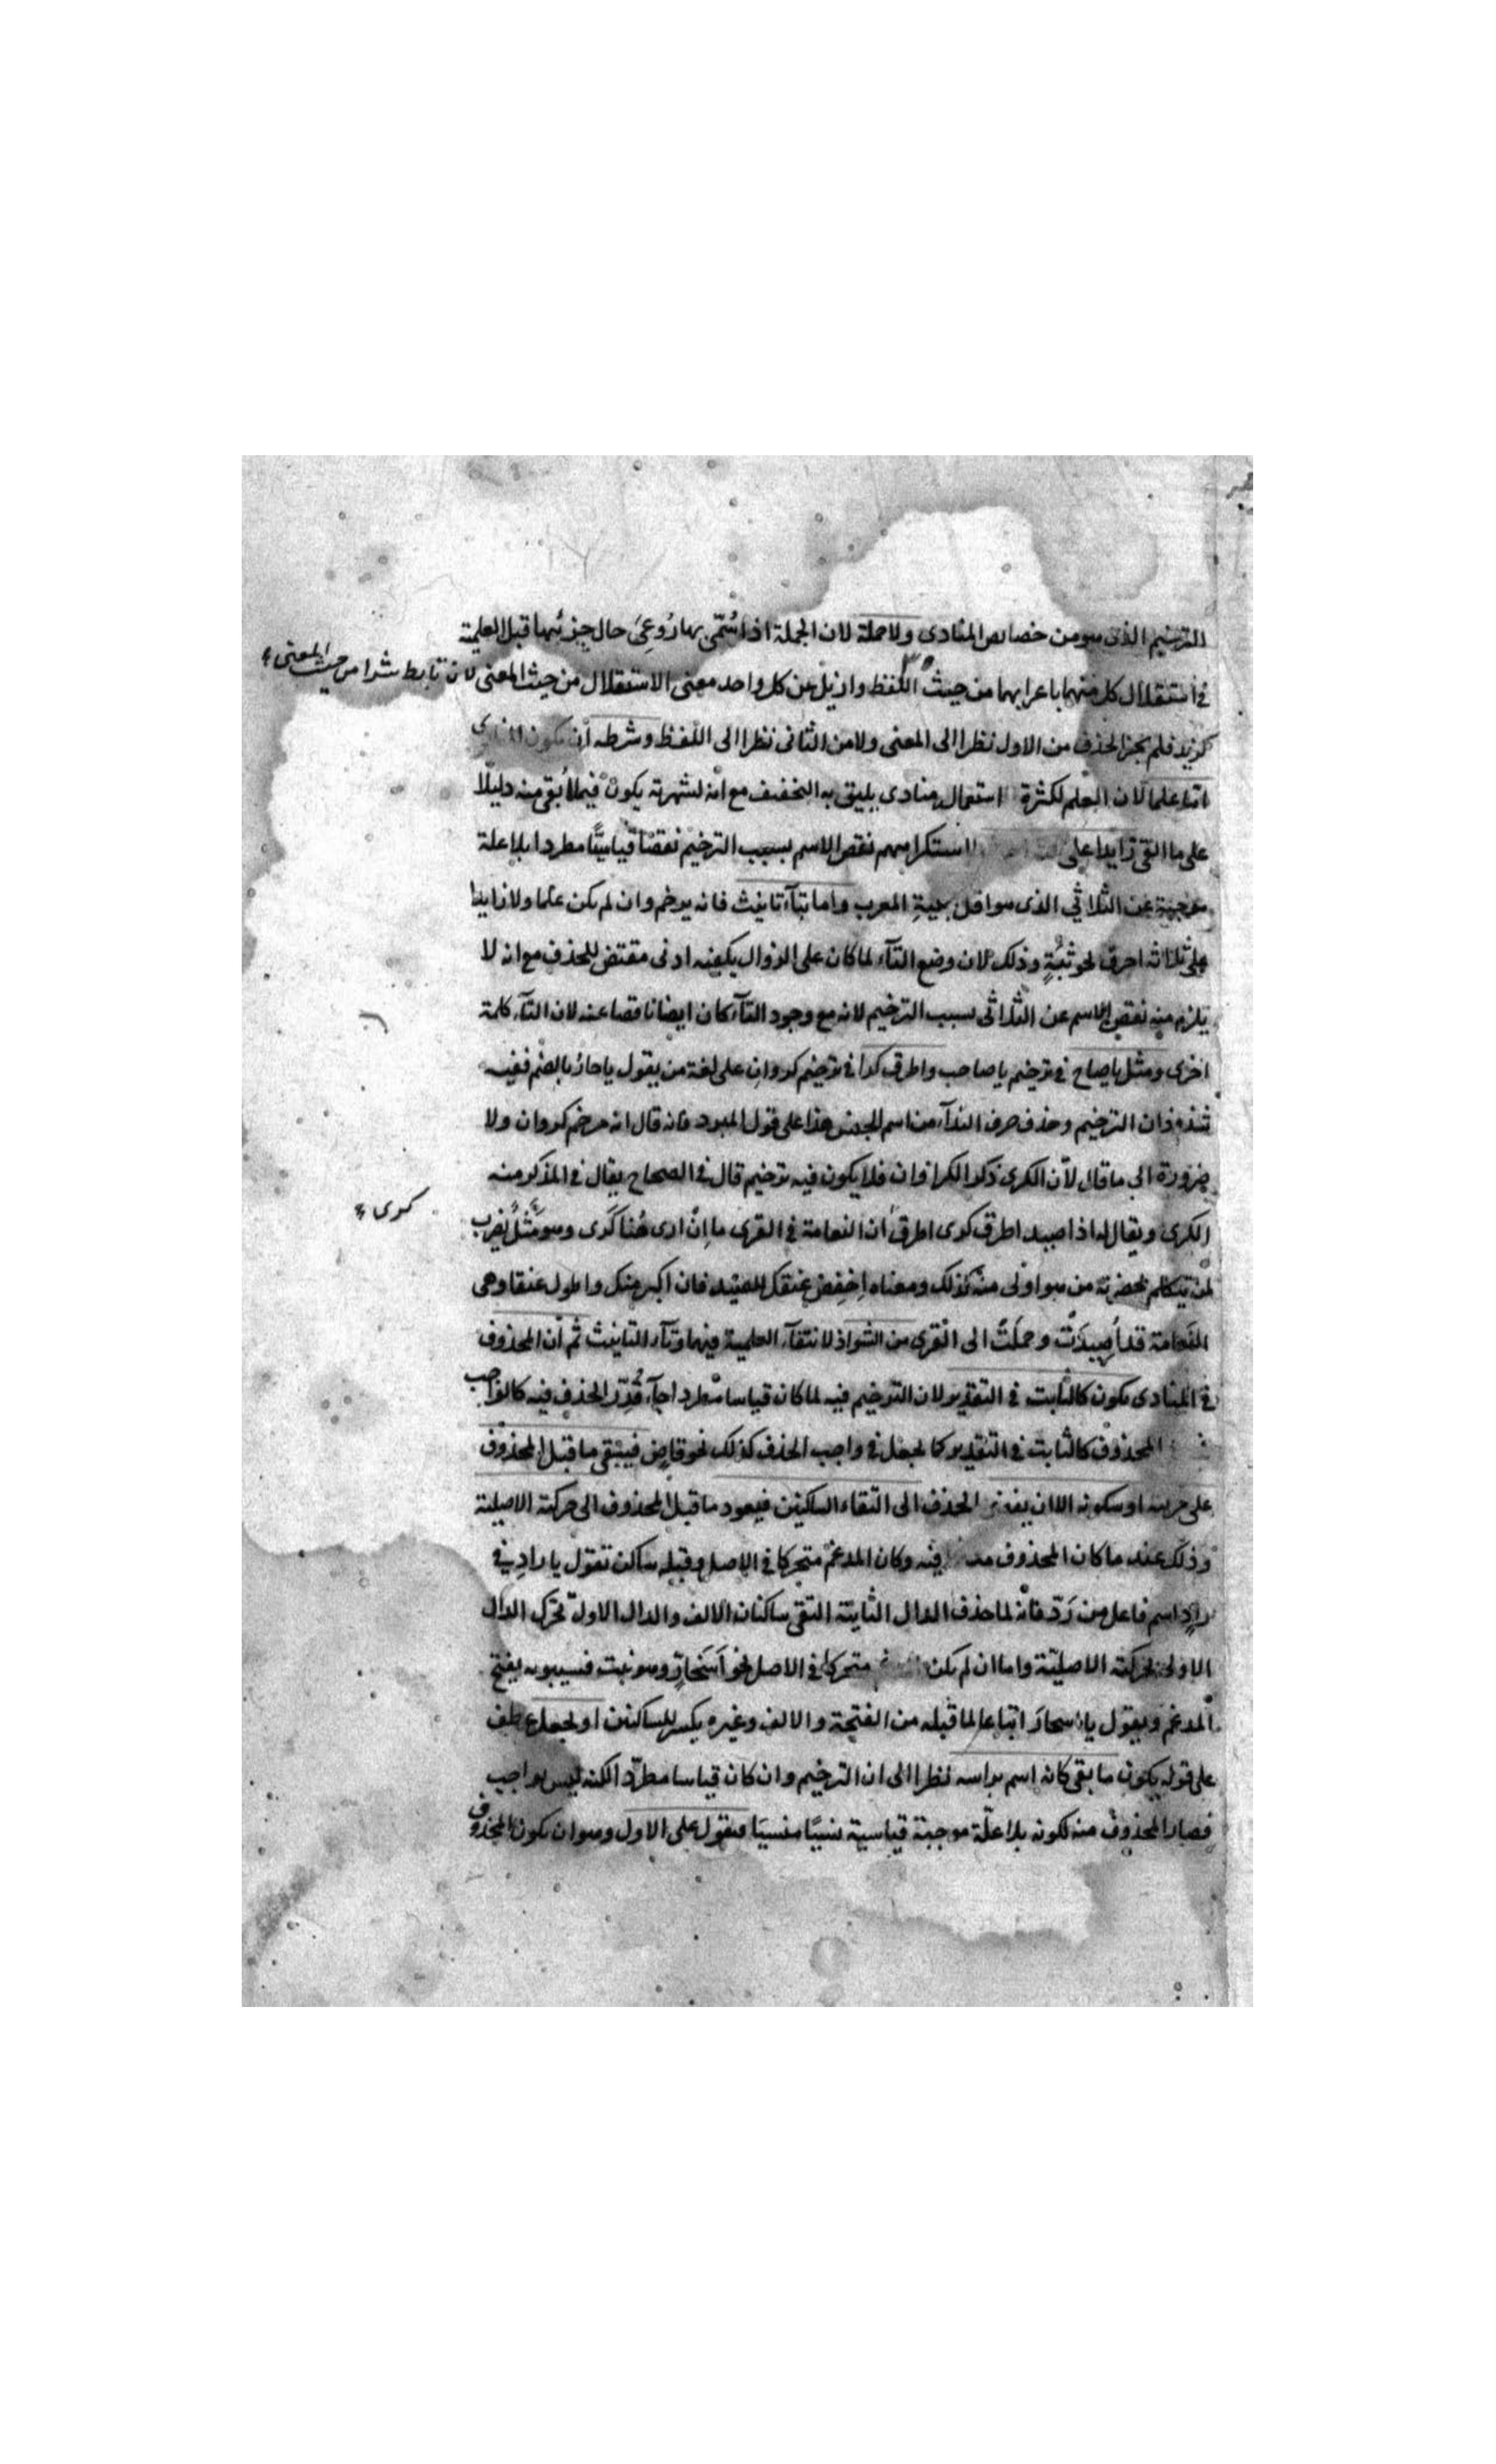 الترخيم الذى هو من خصايص المنادى ولا جملة لان الجملة اذا سُمّى بها رُوعِىَ حال جزئيها قبل العلمية
فى استقلال كل منهما باعرابهما من حيث اللفظ وازيل عن كل واحد معنى الاستقلال من حيث المعنى لان تابط شرا من حيث المعنى
كزيد فلم يجز الحذف من الاول نظرا الى المعنى ولا من الثانى نظرا الى اللفظ وشرطه أن يكون المنادى
اما علما لان العلم لكثرة استعماله منادى يليق به التخفيف مع انه لشهرته يكون فيما بقى منه دليلا
على ما القى زايدا على لاستكراههم نقص الاسم بسبب الترخيم نقصًا قياسيًّا مطردا بلا علة
موجبة عن الثلاثي الذى هو اقل بنية المعرب واما بتآء تانيث فانه يرخم وان لم يكن علما ولا زايدا
على ثلاثة احرف نحو ثُبَةٍ وذلك لان وضع التآء لما كان على الزوال يكفيه ادنى مقتض للحذف مع انه لا
يلزم منه نقص الاسم عن الثلاثى بسبب الترخيم لانه مع وجود التآء كان ايضا ناقصا عنه لان التآء كلمة
اخرى ومثل يا صاح فى ترخيم يا صاحب واطرق كرا فى ترخيم كروان على لغة من يقول يا حارُ بالضم ففيه
شذوذان الترخيم وحذف حرف الندآء من اسم الجنس هذا على قول المبرد فانه قال انه مرخم كروان ولا
ضرورة الى ما قال لأن الكرى ذكر الكراوان فلا يكون فيه ترخيم قال فى الصحاح يقال فى المذكر منه
الكرى ويقال له اذا صيد اطرق كرى اطرق ان النعامة فى القرى ما اِنْ ارى هُنا كَرى وهو مَثَلٌ يُضرب
كرى
لمن يتكلم بحضرته من هو اولى منه بذلك ومعناه اِخفِض عنقك للصيد فان اكبر منك واطول عنقا وهى
النَعامة قد اُصِيدَتْ وحملت الى القرى من الشواذ لانتفآء العلمية فيهما وتآء التانيث ثم أن المحذوف
فى المنادى يكون كالثابت فى التقدير لان الترخيم فيه لما كان قياسا مطردا جآء قُدِّر الحذف فيه كالواجب
المحذوف كالثابت فى التقدير كما يجعل فى واجب الحذف كذلك نحو قاضٍ فيبقى ما قبل المحذوف
على حركته او سكونه الا ان يفضى الحذف الى التقاء الساكنين فيعود ما قبل المحذوف الى حركته الاصلية
وذلك عند ما كان المحذوف فيه وكان المدغم متحركا فى الاصل وقبله ساكن تقول يا رادِ فى
رادٍّ اسم فاعل من رَدّ فانه لما حذف الدال الثانية التقى ساكنان الالف والدال الاولى تحرك الدال
الاولى بحركته الاصليّة واما ان لم يكن متحركا فى الاصل نحو اَسْحَارّ وهو نبت فسيبويه يفتح
المدغم ويقول يا اسحارَ اتباعا لما قبله من الفتحة والالف وغيره يكسر للساكنين او يجعل عطف
على قوله يكون ما بقى كانه اسم براسه نظرا الى ان الترخيم وان كان قياسا مطرّدا لكنه ليس بواجب
فصار المحذوف منه لكونه بلا علّة موجبة قياسية نسيًا منسيًا فيقول على الاول وهو ان يكون المحذوف